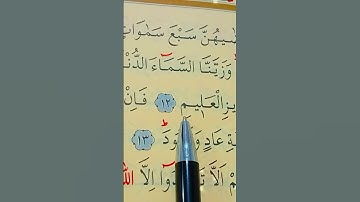 ضٰيهُنَّ سَبْعَ سَمٰوَاتٍ
وَزَيَّنَّا السَّمَٓاءَ الدُّنْ
يزِ الْعَل۪يمِ ﴿١٢﴾ فَاِنْ
ةِ عَادٍ وَ ودَ ﴿١٣﴾
مْ اَلَّا تَ دُٓوا اِلَّا اللّٰ